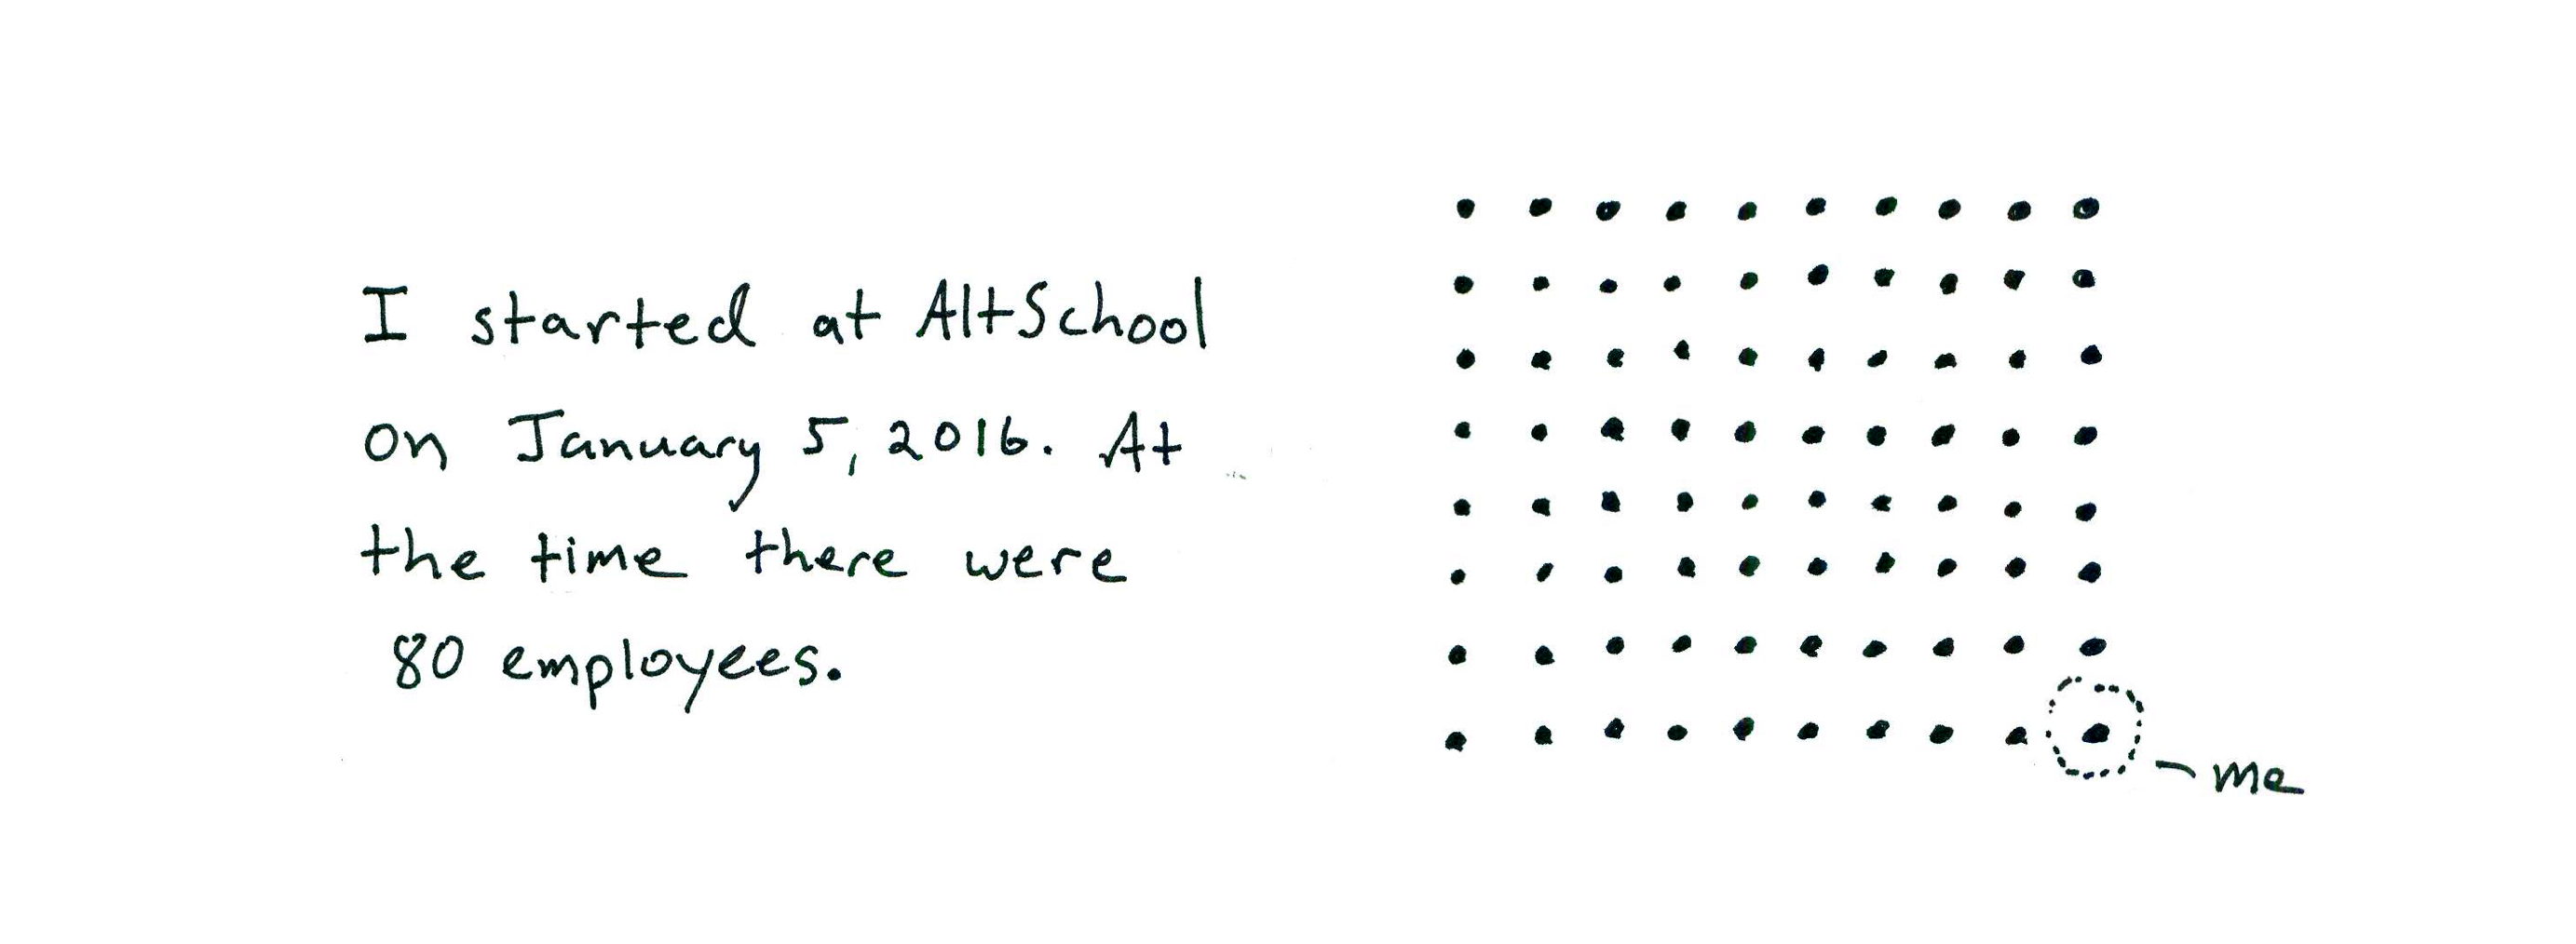 I started at AltSchool
on January 5, 2016. At
the time there were
80 employees.
me